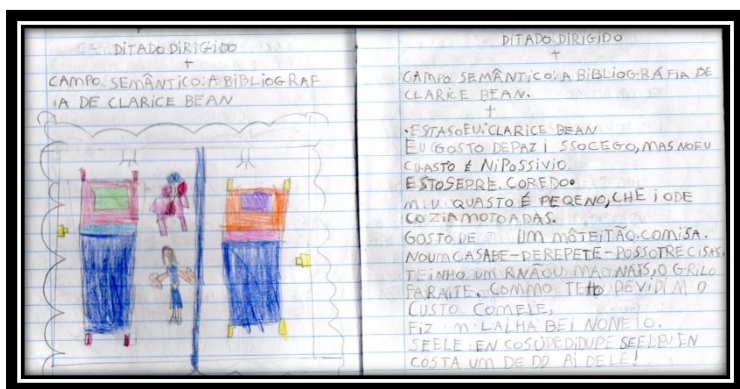 DITADO DIRIGIDO
+
CAMPO SEMÂNTICO: A BIBLIOGRAF
IA DE CLARICE BEAN
DITADO DIRIGIDO
+
CAMPO SEMÂNTICO: A BIBLIOGRÁFIA DE
CLARICE BEAN.
+
·ESTASOEU: CLARICE BEAN
EU GOSTO DEPAZ I SSOCEGO, MAS NOEU
CUASTO É NiPOSSIVIO.
ESTOSEPRE COREDO.
QUASTO É PEQENO, CHE I ODE
COZIAMOTOADAS.
GOSTO DE UM MÔTEITÃO. COMISA.
NOUMCASABE-DEREPETE-POSSOTRECISAS.
TEINHO UM MAONAIS, O GRILO
FARAITE. COMMO TEHO DEVIDI M O
CUSTO COMELE,
FIZ M LALHA BEI NONEIO.
SEELE EN
COSTA UM DEDO AI DELE!